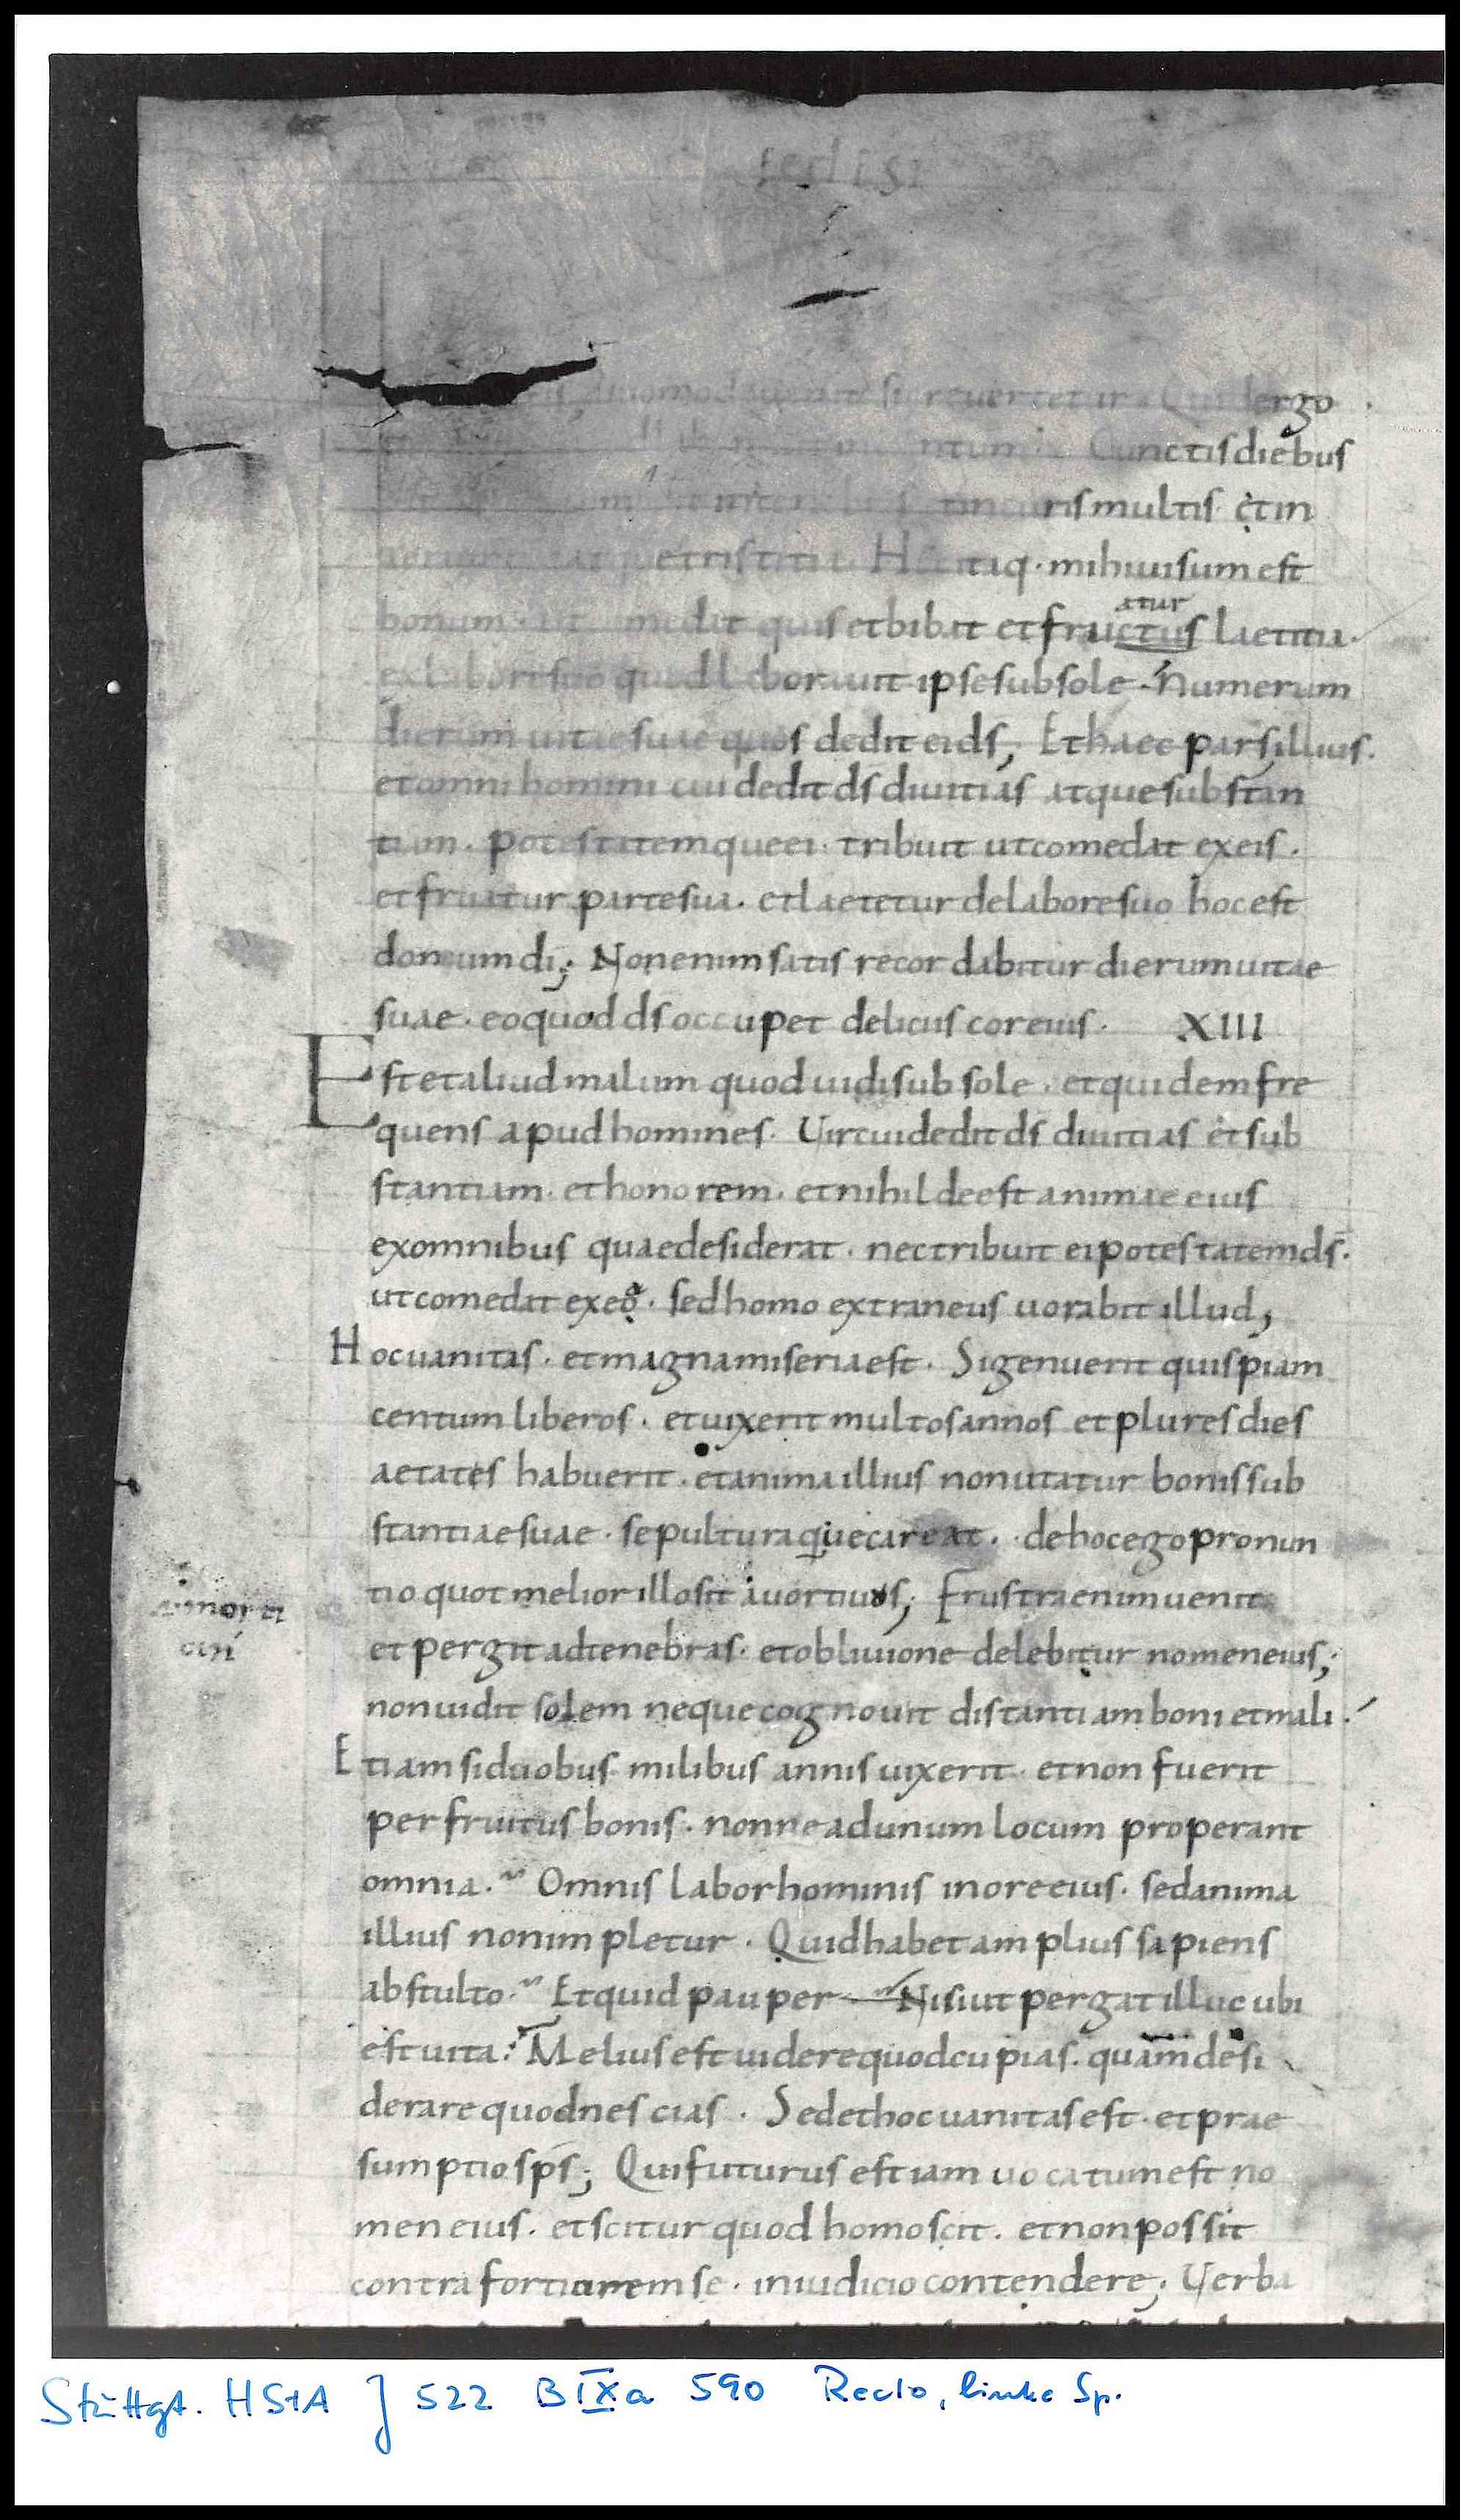 quomodo uenit sic reuertetur. Quid ergo
Cunctis diebus
curis multis et in
et tristitia. Hoc itaq· mihi uisum est
bonum. ut comedat quis et bibat et fructus laetitia.
atur
ex labore suo quod laborauit ipse sub sole. Numerum
dierum uitae suae quos dedit ei ds; Et haec pars illius.
et omni homini cui dedit ds diuitias atque substan
tiam. potestatemque ei tribuit ut comedat ex eis.
et fruatur parte sua. et laetetur de labore suo hoc est
donum di; Non enim satis recordabitur dierum uitae
suae. eo quod ds occupet deliciis cor eius. XIII
Est et aliud malum quod uidi sub sole. et quidem fre
quens apud homines. Uir cui dedit ds diuitias et sub
stantiam. et honorem. et nihil deest animae eius
ex omnibus quae desiderat. nec tribuit ei potestatem ds.
ut comedat ex eo. sed homo extraneus uorabit illud;
Hoc uanitas. et magna miseria est. Si genuerit quispiam
centum liberos. et uixerit multos annos et plures dies
aetates habuerit. et anima illius non utatur bonis sub
stantiae suae. sepulturaque careat. de hoc ego pronun
tio quot melior illo sit auortiuos; Frustra enim uenit
et pergit ad tenebras. et obliuione delebitur nomen eius;
non uidit solem neque cognouit distantiam boni et mali.
Etiam si duobus milibus annis uixerit. et non fuerit
perfruitus bonis. nonne ad unum locum properant
omnia. Omnis labor hominis in ore eius. sed anima
illius non impletur. Quid habet amplius sapiens
ab stulto. Et quid pauper Nisi ut pergat illuc ubi
est uita. Melius est uidere quod cupias. quam desi
derare quod nescias. Sed et hoc uanitas est. et prae
sumptio sps; Qui futurus est iam uocatum est no
men eius. et scitur quod homo scit. et non possit
contra fortiorem se. in iudicio contendere; Uerba
Stuttgt. HStA J 522 B IXa 590 Recto, linke Sp.